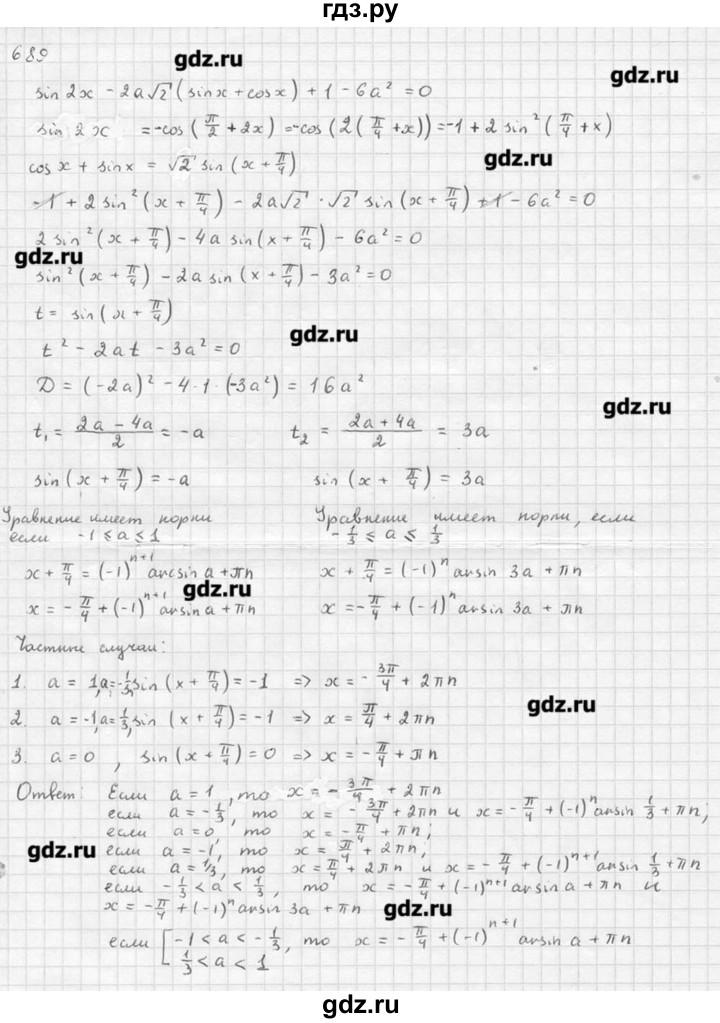 гдз.ру
689
gdz.ru
gdz.ru
sin 2x - 2a√2 (sinx + cosx) + 1 - 6a² = 0
sin 2x = -cos(π/2 + 2x) = -cos(2(π/4 + x)) = -1 + 2 sin²(π/4 + x)
gdz.ru
cos x + sin x = √2 sin(x + π/4)
-1 + 2 sin²(x + π/4) - 2a√2 · √2 sin(x + π/4) + 1 - 6a² = 0
2 sin²(x + π/4) - 4a sin(x + π/4) - 6a² = 0
gdz.ru
sin²(x + π/4) - 2a sin(x + π/4) - 3a² = 0
t = sin(x + π/4)
gdz.ru
t² - 2at - 3a² = 0
D = (-2a)² - 4·1·(-3a²) = 16a²
gdz.ru
t₁ = (2a - 4a)/2 = -a t₂ = (2a + 4a)/2 = 3a
sin(x + π/4) = -a sin(x + π/4) = 3a
Уравнение имеет корни Уравнение имеет корни, если
если -1 ≤ a ≤ 1 -1/3 ≤ a ≤ 1/3
x + π/4 = (-1)ⁿ⁺¹ arcsin a + πn x + π/4 = (-1)ⁿ arsin 3a + πn
gdz.ru
x = -π/4 + (-1)ⁿ⁺¹ arsin a + πn x = -π/4 + (-1)ⁿ arsin 3a + πn
Частные случаи:
1. a = 1, a = -1/3, sin(x + π/4) = -1 => x = -3π/4 + 2πn
gdz.ru
2. a = -1, a = 1/3, sin(x + π/4) = -1 => x = π/4 + 2πn
3. a = 0, sin(x + π/4) = 0 => x = -π/4 + πn
Ответ: Если a = 1, то x = -3π/4 + 2πn
если a = -1/3, то x = -3π/4 + 2πn и x = -π/4 + (-1)ⁿ arsin 1/3 + πn;
если a = 0, то x = -π/4 + πn;
gdz.ru
если a = -1, то x = π/4 + 2πn;
если a = 1/3, то x = π/4 + 2πn и x = -π/4 + (-1)ⁿ⁺¹ arsin 1/3 + πn
если -1/3 < a < 1/3, то x = -π/4 + (-1)ⁿ⁺¹ arsin a + πn и
x = -π/4 + (-1)ⁿ arsin 3a + πn
gdz.ru
если [ -1 < a < -1/3, то x = -π/4 + (-1)ⁿ⁺¹ arsin a + πn
1/3 < a < 1
gdz.ru